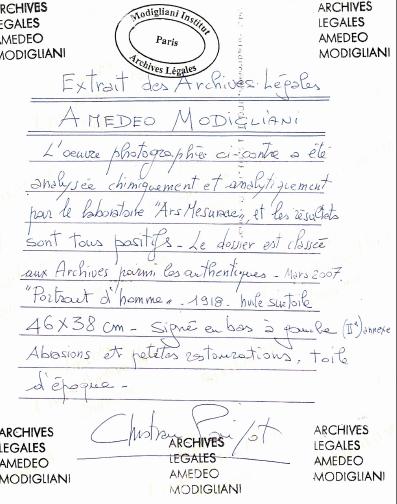 ARCHIVES
LEGALES
AMEDEO
MODIGLIANI
Modigliani Institut
Paris
Archives Légales
ARCHIVES
LEGALES
AMEDEO
MODIGLIANI
Extrait des Archives Légales
AMEDEO MODIGLIANI
L'oeuvre photographiée ci-contre a été
analysée chimiquement et analytiquement
par le laboratoire "Ars Mesurae", et les résultats
sont tous positifs - Le dossier est classée
aux Archives parmi les authentiques - Mars 2007.
"Portrait d'homme". 1918. huile sur toile
46 x 38 cm - Signé en bas à gauche annexe
Abrasions et petites restaurations, toile
d'époque -
ARCHIVES
LEGALES
AMEDEO
MODIGLIANI
ARCHIVES
LEGALES
AMEDEO
MODIGLIANI
ARCHIVES
LEGALES
AMEDEO
MODIGLIANI